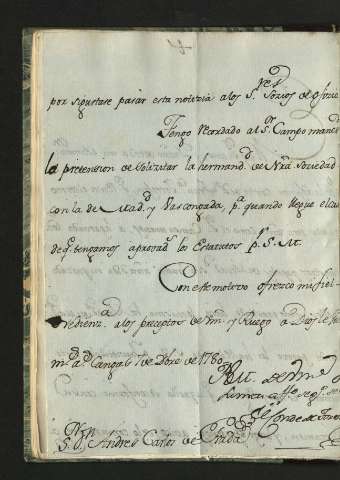 por siquetare pasar esta noticia a los S.res Socios de oficio
Tengo recordado al S.r Campomanes
la pretension de solicitar la hermand.d de Nra Sociedad
con la de Mad.d y Vascongada, p.a quando llegue el caso
de q.e tengamos aprovad.s los Estatutos p.r S. M.
Con este motivo ofrezco mi fiel
ovedienz.a a los preceptos de Vm. y Ruego a Dios le
m.s a.s Cangas 1 de Dbre de 1780
BLM. de Vm
su mas
el Conde de
S.r D.n Andres Carlos de Prada